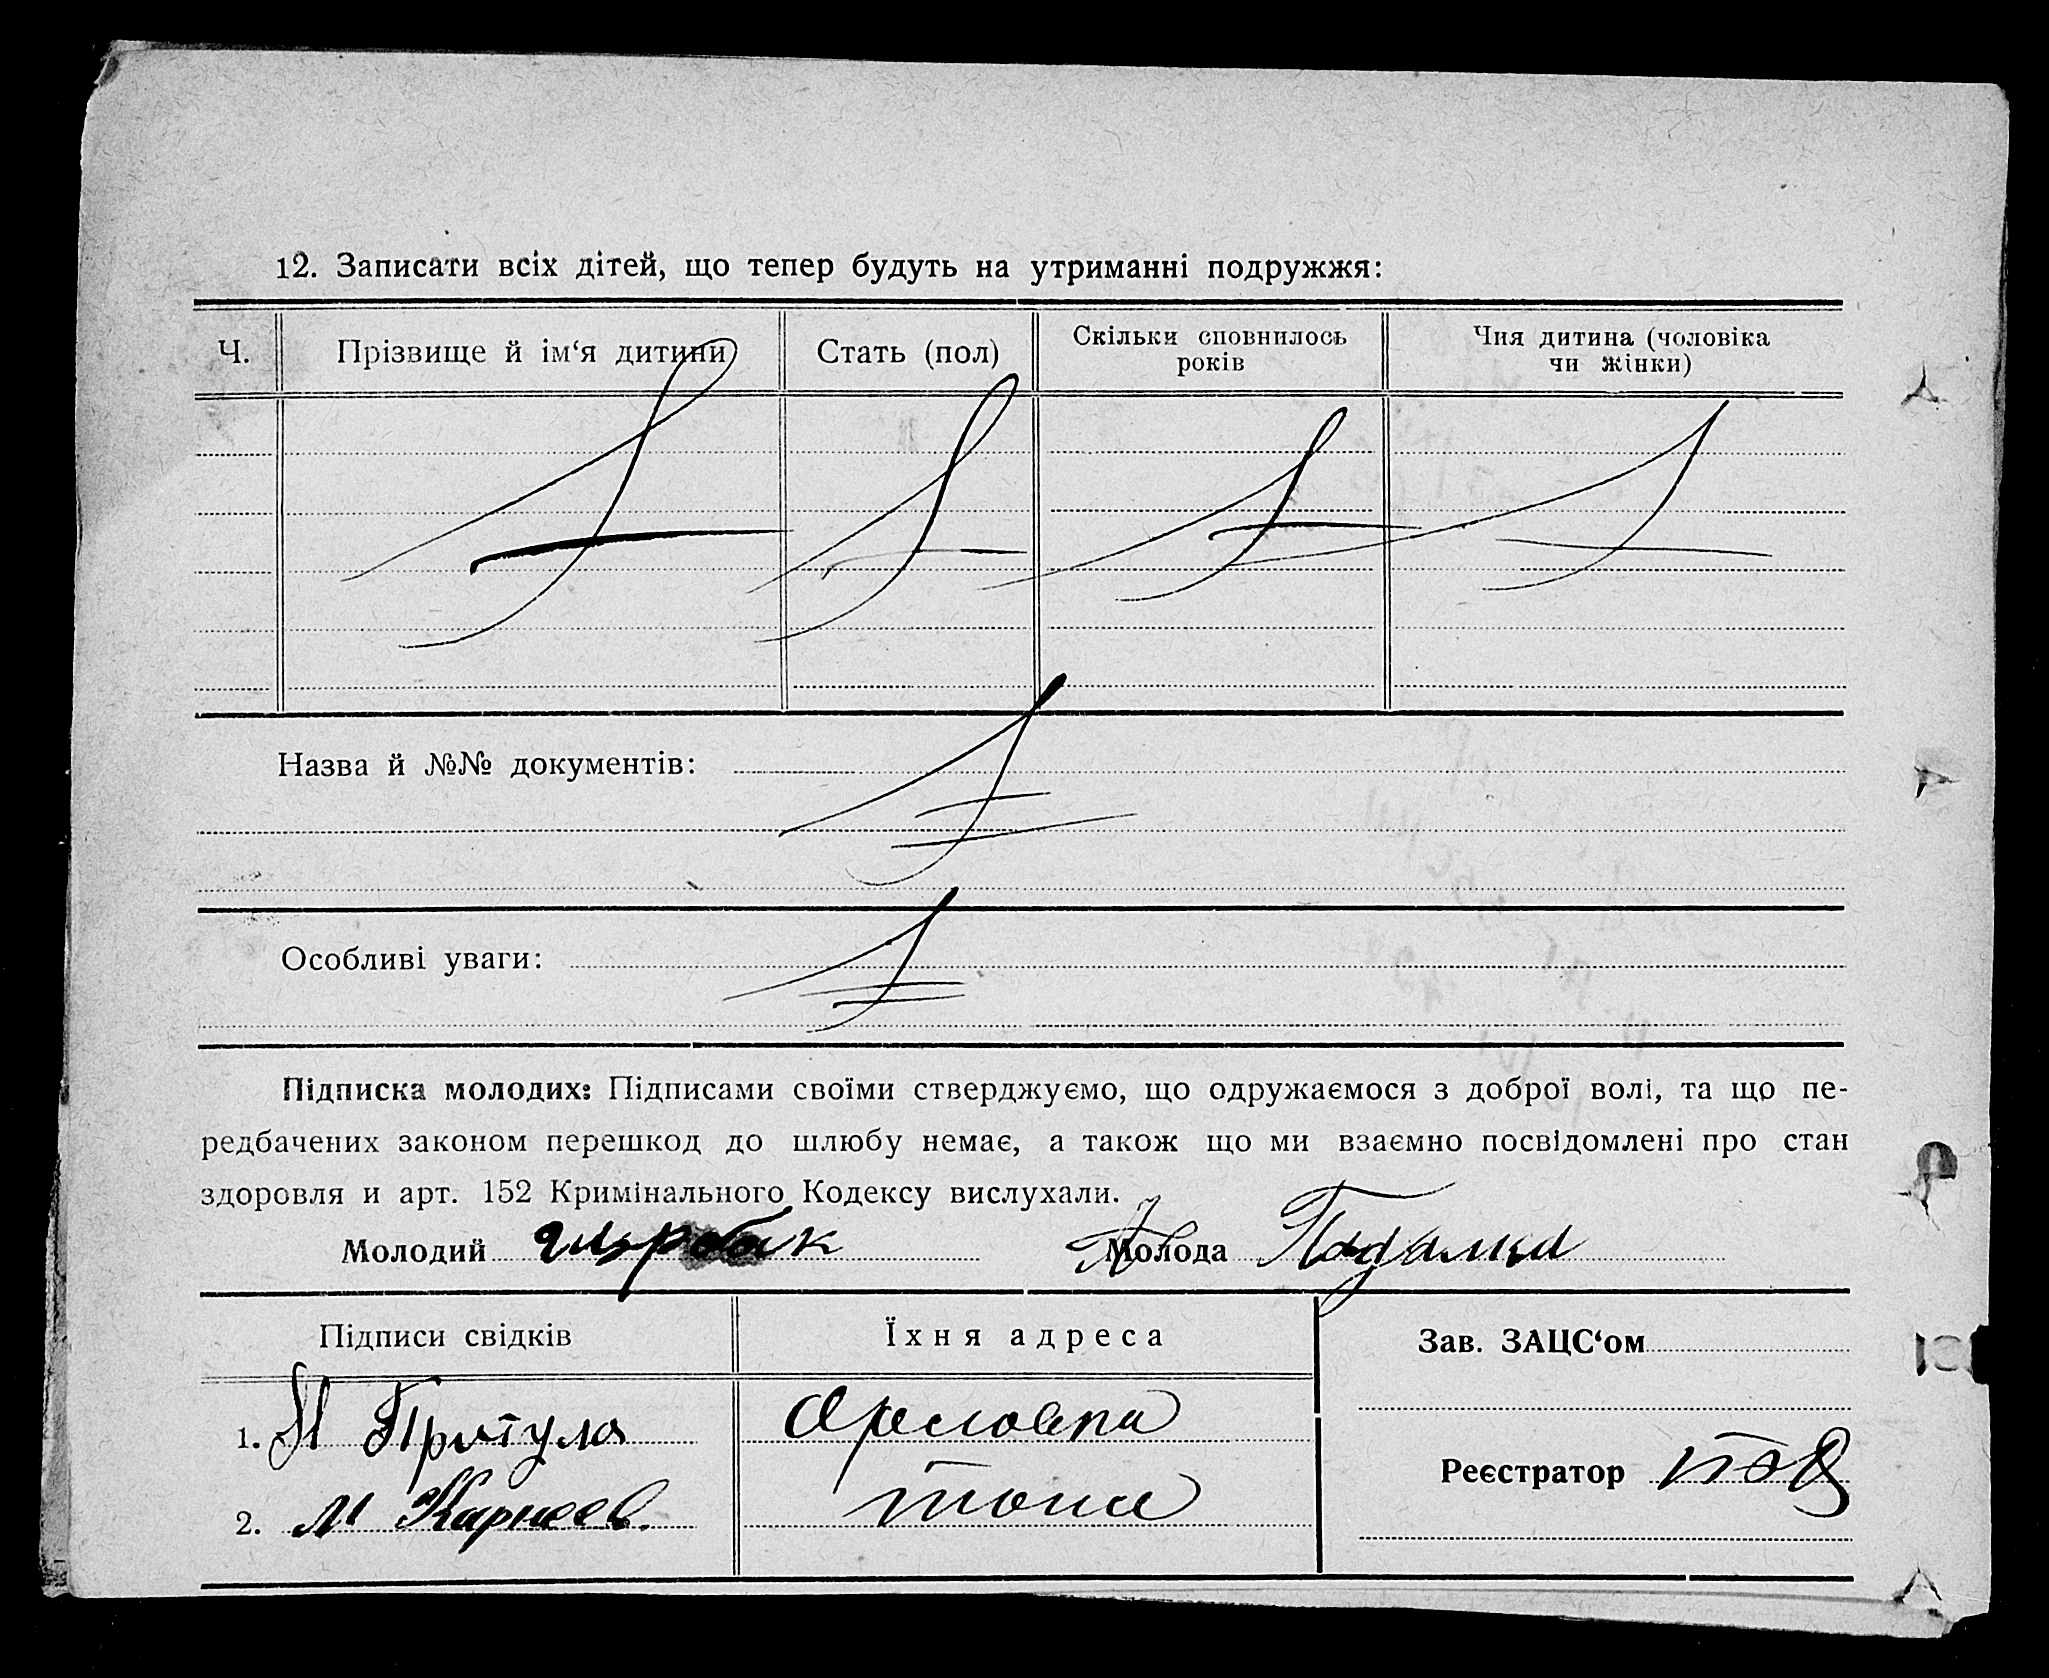 12. Записати всіх дітей, що тепер будуть на утриманні подружжя:
Ч. Прізвище й ім‘я дитини Стать (пол) Скільки сповнилось років Чия дитина (чоловіка чи жінки)
Назва й №№ документів:
Особливі уваги:
Підписка молодих: Підписами своїми стверджуємо, що одружаємося з доброї волі, та що пе-
редбачених законом перешкод до шлюбу немає, а також що ми взаємно посвідомлені про стан
здоровля и арт. 152 Кримінального Кодексу вислухали.
Молодий Молода
Підписи свідків Їхня адреса Зав. ЗАЦС‘ом
1. Притула
Реєстратор
2. М Карнеев.